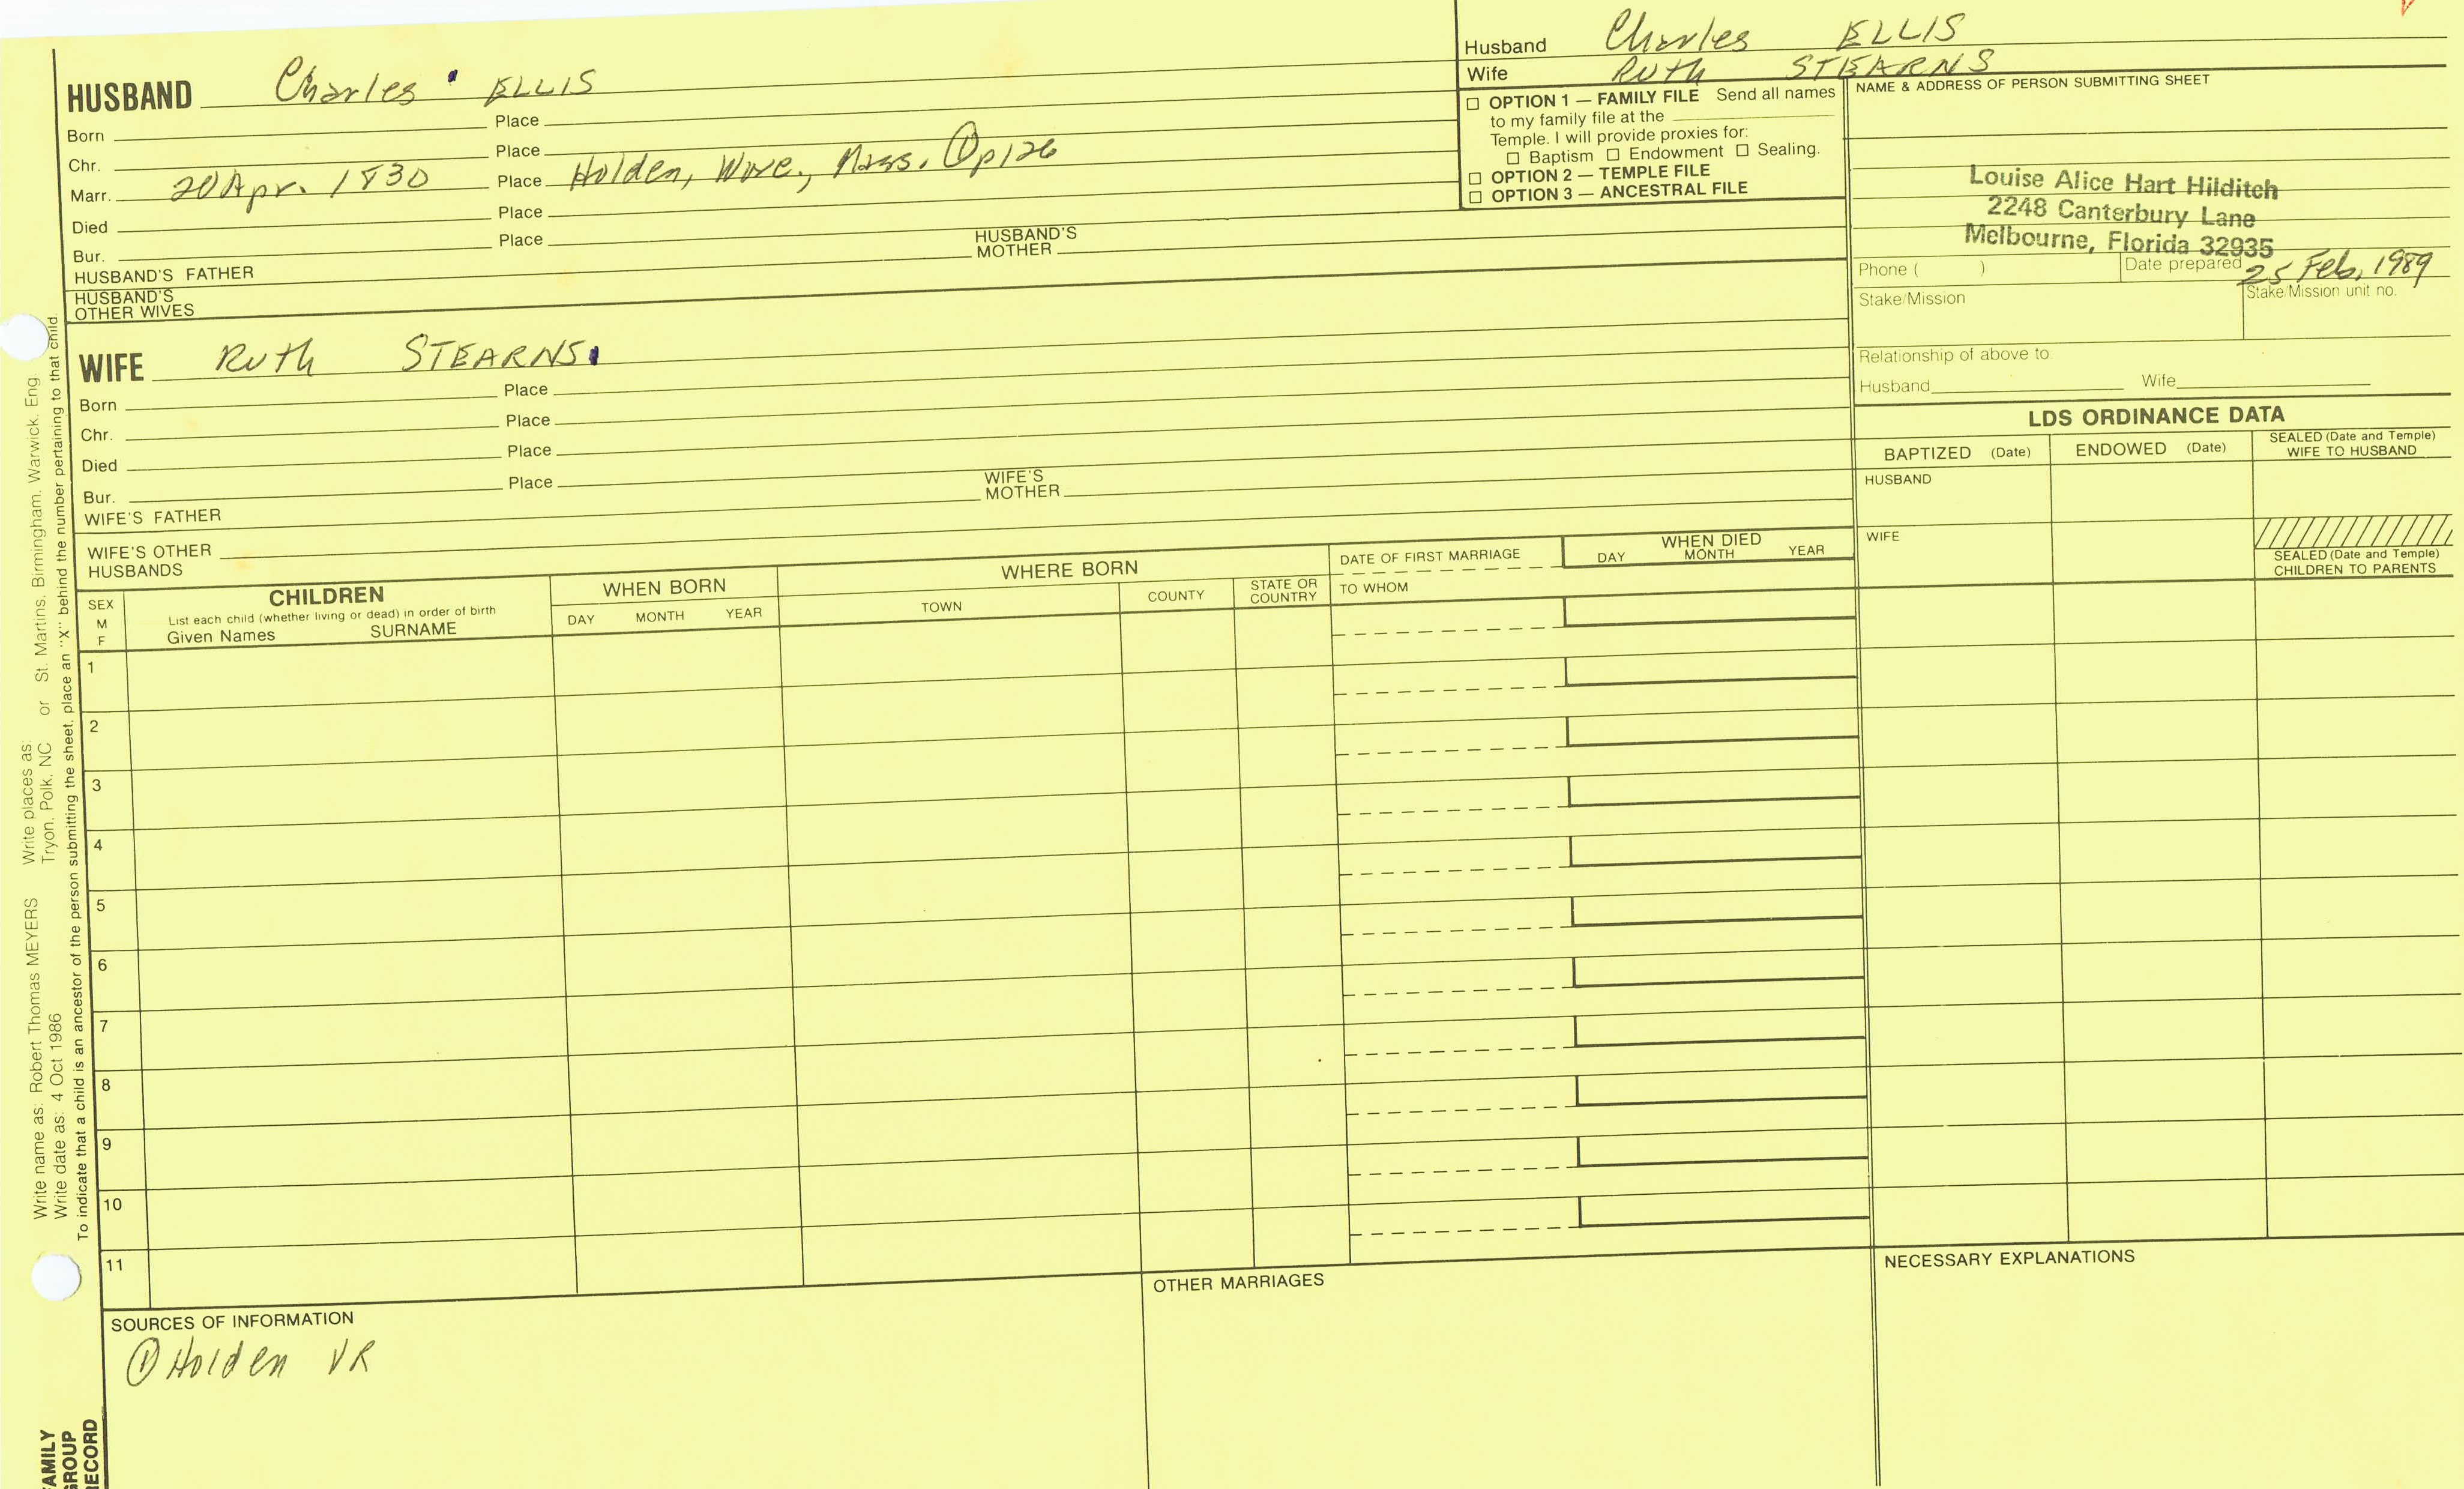 Husband Charles ELLIS
Wife Ruth STEARNS
HUSBAND Charles ELLIS
Born Place
Chr. Place
Marr. 20 Apr. 1830 Place Holden, Worc., Mass. ① p126
Died Place
Bur. Place
HUSBAND'S FATHER HUSBAND'S MOTHER
HUSBAND'S OTHER WIVES
☐ OPTION 1 — FAMILY FILE Send all names
to my family file at the
Temple. I will provide proxies for:
☐ Baptism ☐ Endowment ☐ Sealing.
☐ OPTION 2 — TEMPLE FILE
☐ OPTION 3 — ANCESTRAL FILE
NAME & ADDRESS OF PERSON SUBMITTING SHEET
Louise Alice Hart Hilditch
2248 Canterbury Lane
Melbourne, Florida 32935
Phone ( ) Date prepared 25 Feb, 1989
Stake/Mission Stake/Mission unit no.
Relationship of above to
Husband Wife
WIFE Ruth STEARNS
Born Place
Chr. Place
Died Place
Bur. Place
WIFE'S FATHER WIFE'S MOTHER
WIFE'S OTHER HUSBANDS
LDS ORDINANCE DATA
BAPTIZED (Date) ENDOWED (Date) SEALED (Date and Temple) WIFE TO HUSBAND
HUSBAND
WIFE
SEALED (Date and Temple) CHILDREN TO PARENTS
SEX M F
CHILDREN
List each child (whether living or dead) in order of birth
Given Names SURNAME
WHEN BORN
DAY MONTH YEAR
WHERE BORN
TOWN COUNTY STATE OR COUNTRY
DATE OF FIRST MARRIAGE
TO WHOM
WHEN DIED
DAY MONTH YEAR
1
2
3
4
5
6
7
8
9
10
11
SOURCES OF INFORMATION
① Holden VR
OTHER MARRIAGES
NECESSARY EXPLANATIONS
Write name as: Robert Thomas MEYERS Write places as:
Write date as: 4 Oct 1986 Tryon, Polk, NC or St. Martins, Birmingham, Warwick, Eng.
To indicate that a child is an ancestor of the person submitting the sheet, place an "X" behind the number pertaining to that child.
FAMILY
GROUP
RECORD